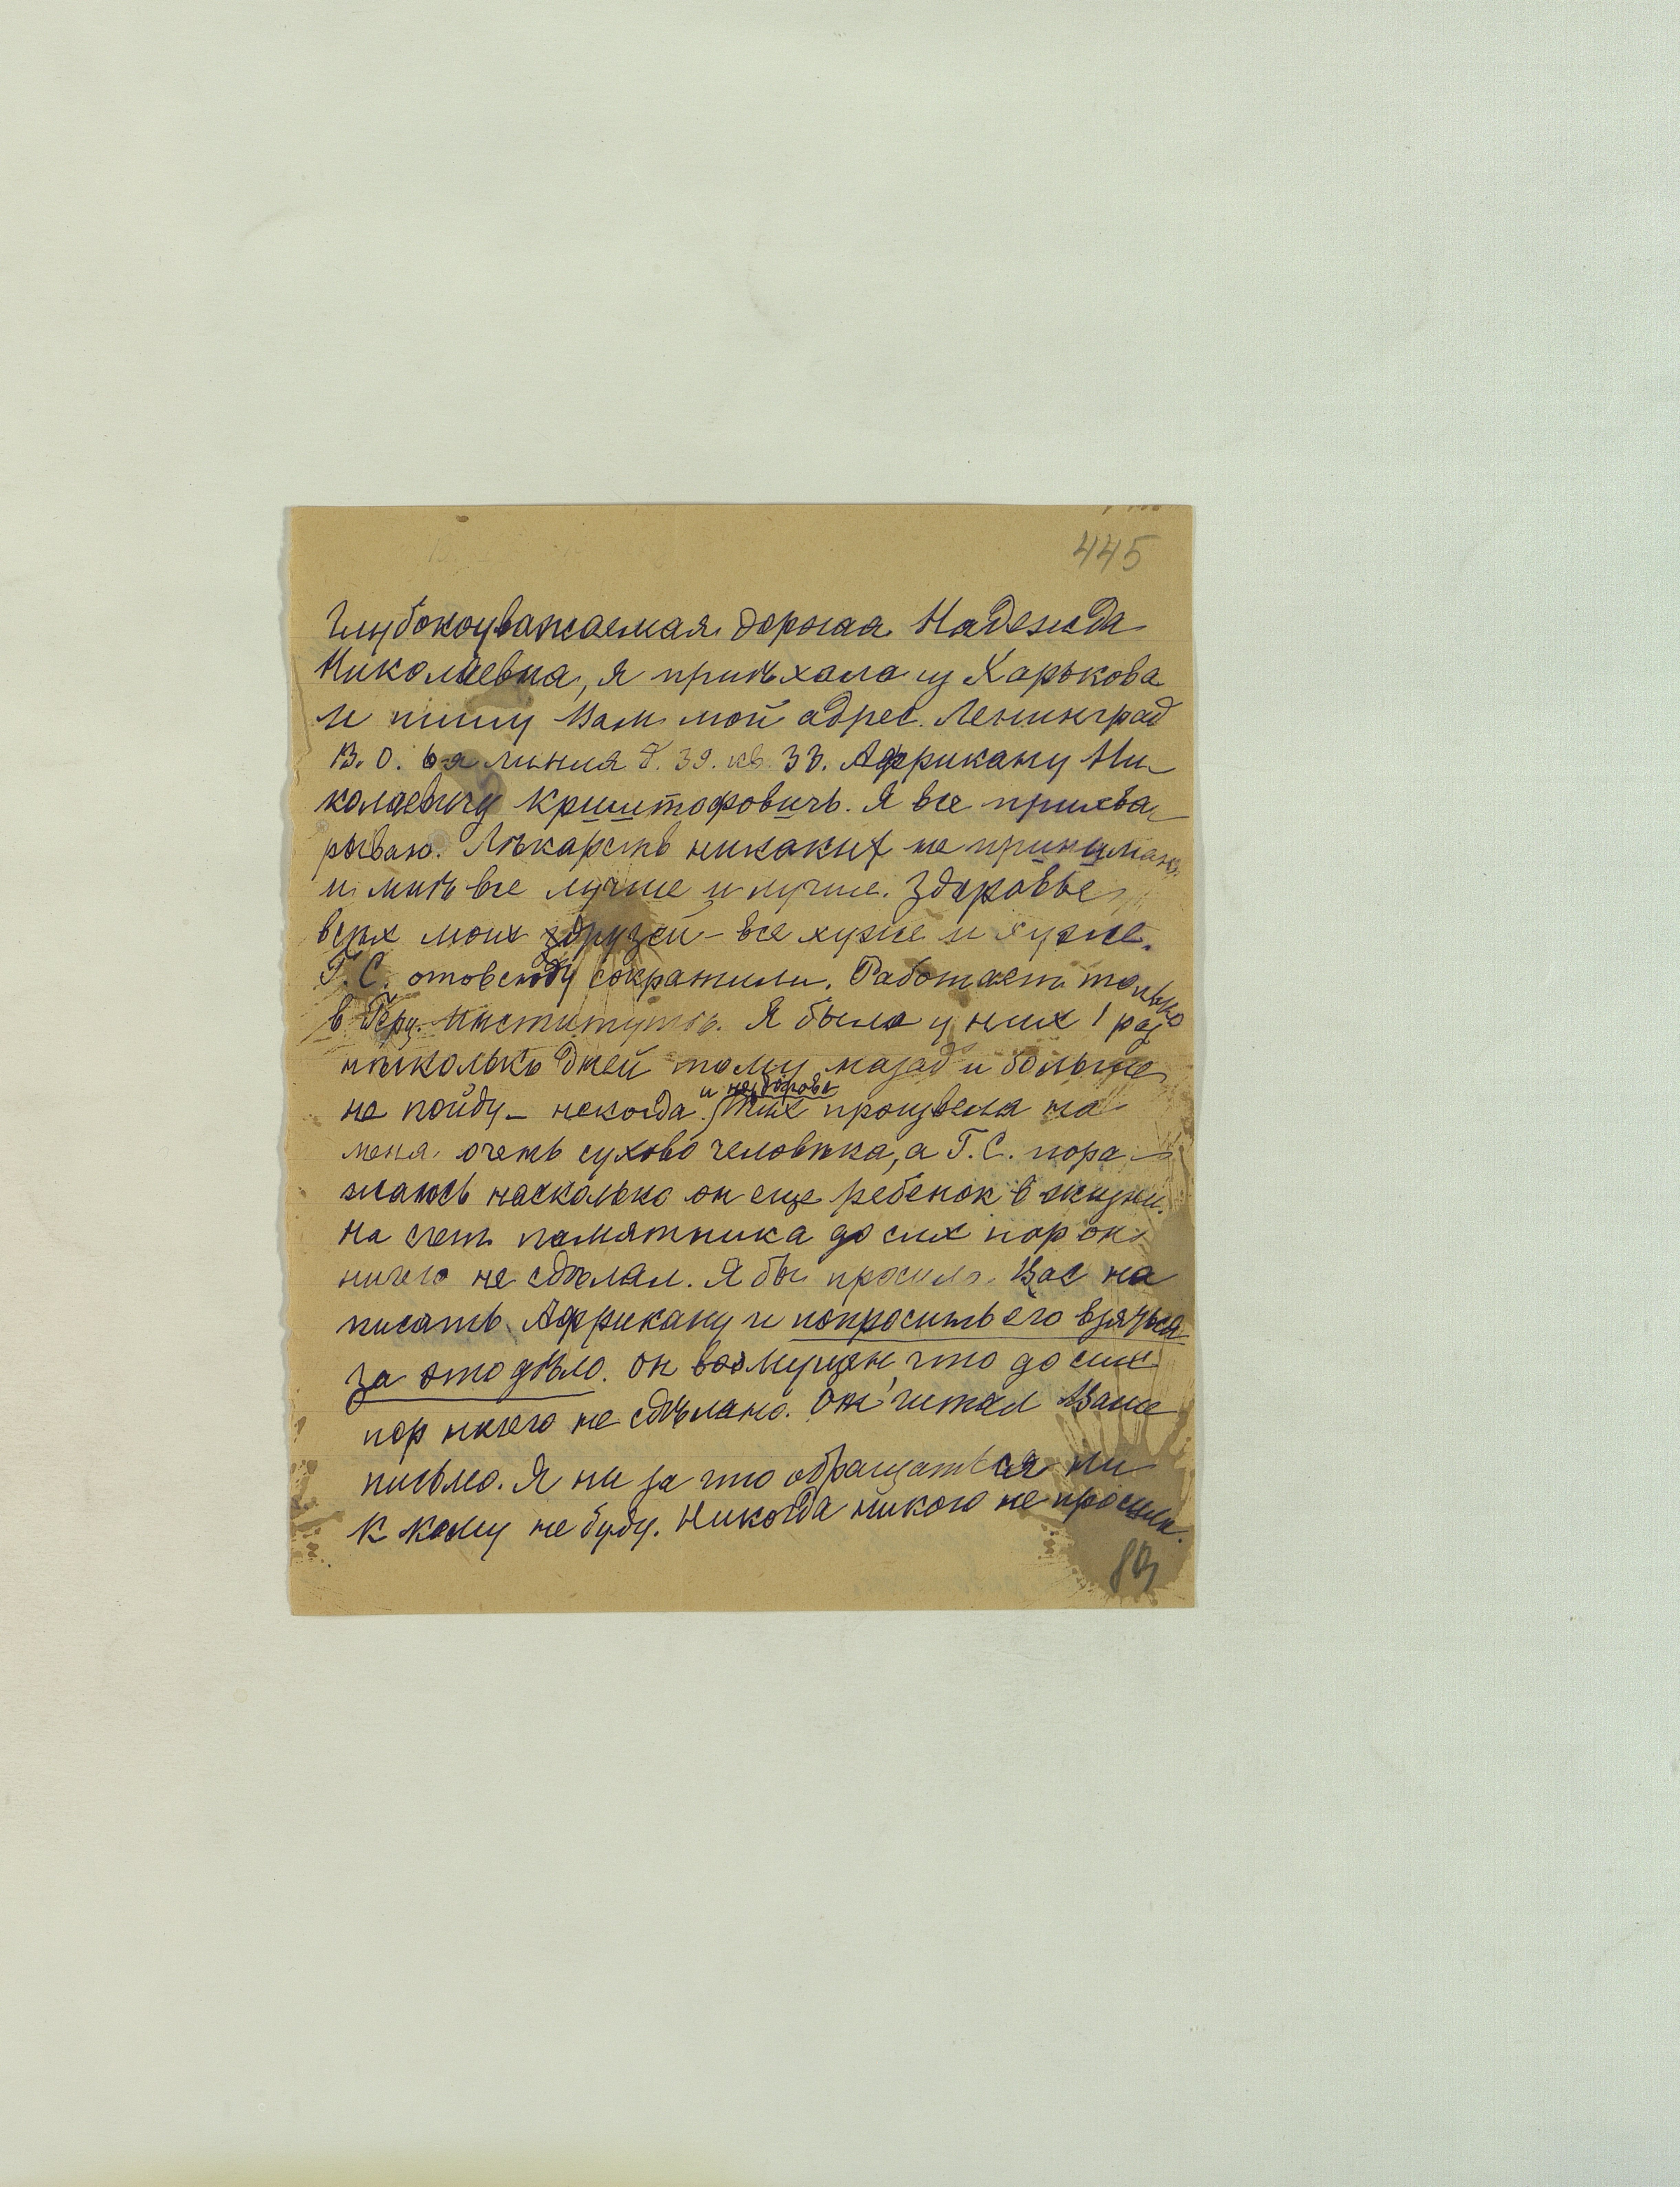 445
Глубокоуважаемая дорогая Надежда
Николаевна, я приѣхала из Харькова
и пишу Вам мой адрес. Ленинград
В. О. 6-я линия д. 39. кв. 33. Африкану Ни-
колаевичу Криштофовичъ. Я все прихва-
рываю. Лѣкарств никаких не принимаю,
и мнѣ все лучше и лучше. Здоровье
всѣх моих друзей – все хуже и хуже.
Г. С. отовсюду сократили. Работает только
в Герц. Институтѣ. Я была у них 1 раз
нѣсколько дней тому назад и больше
не пойду – некогда и нездорова.
произвела на
меня очень сухово человѣка, а Г. С. пора-
жаюсь насколько он еще ребенок в жизни.
На счет памятника до сих пор он
ничего не сдѣлал. Я бы просила Вас на
писать Африкану и попросить его взяться
за это дѣло. Он возмущен, что до сих
пор ничего не сдѣлано. Он читал Ваше
письмо. Я ни за что обращаться ни
к кому не буду. Никогда никого не просила.